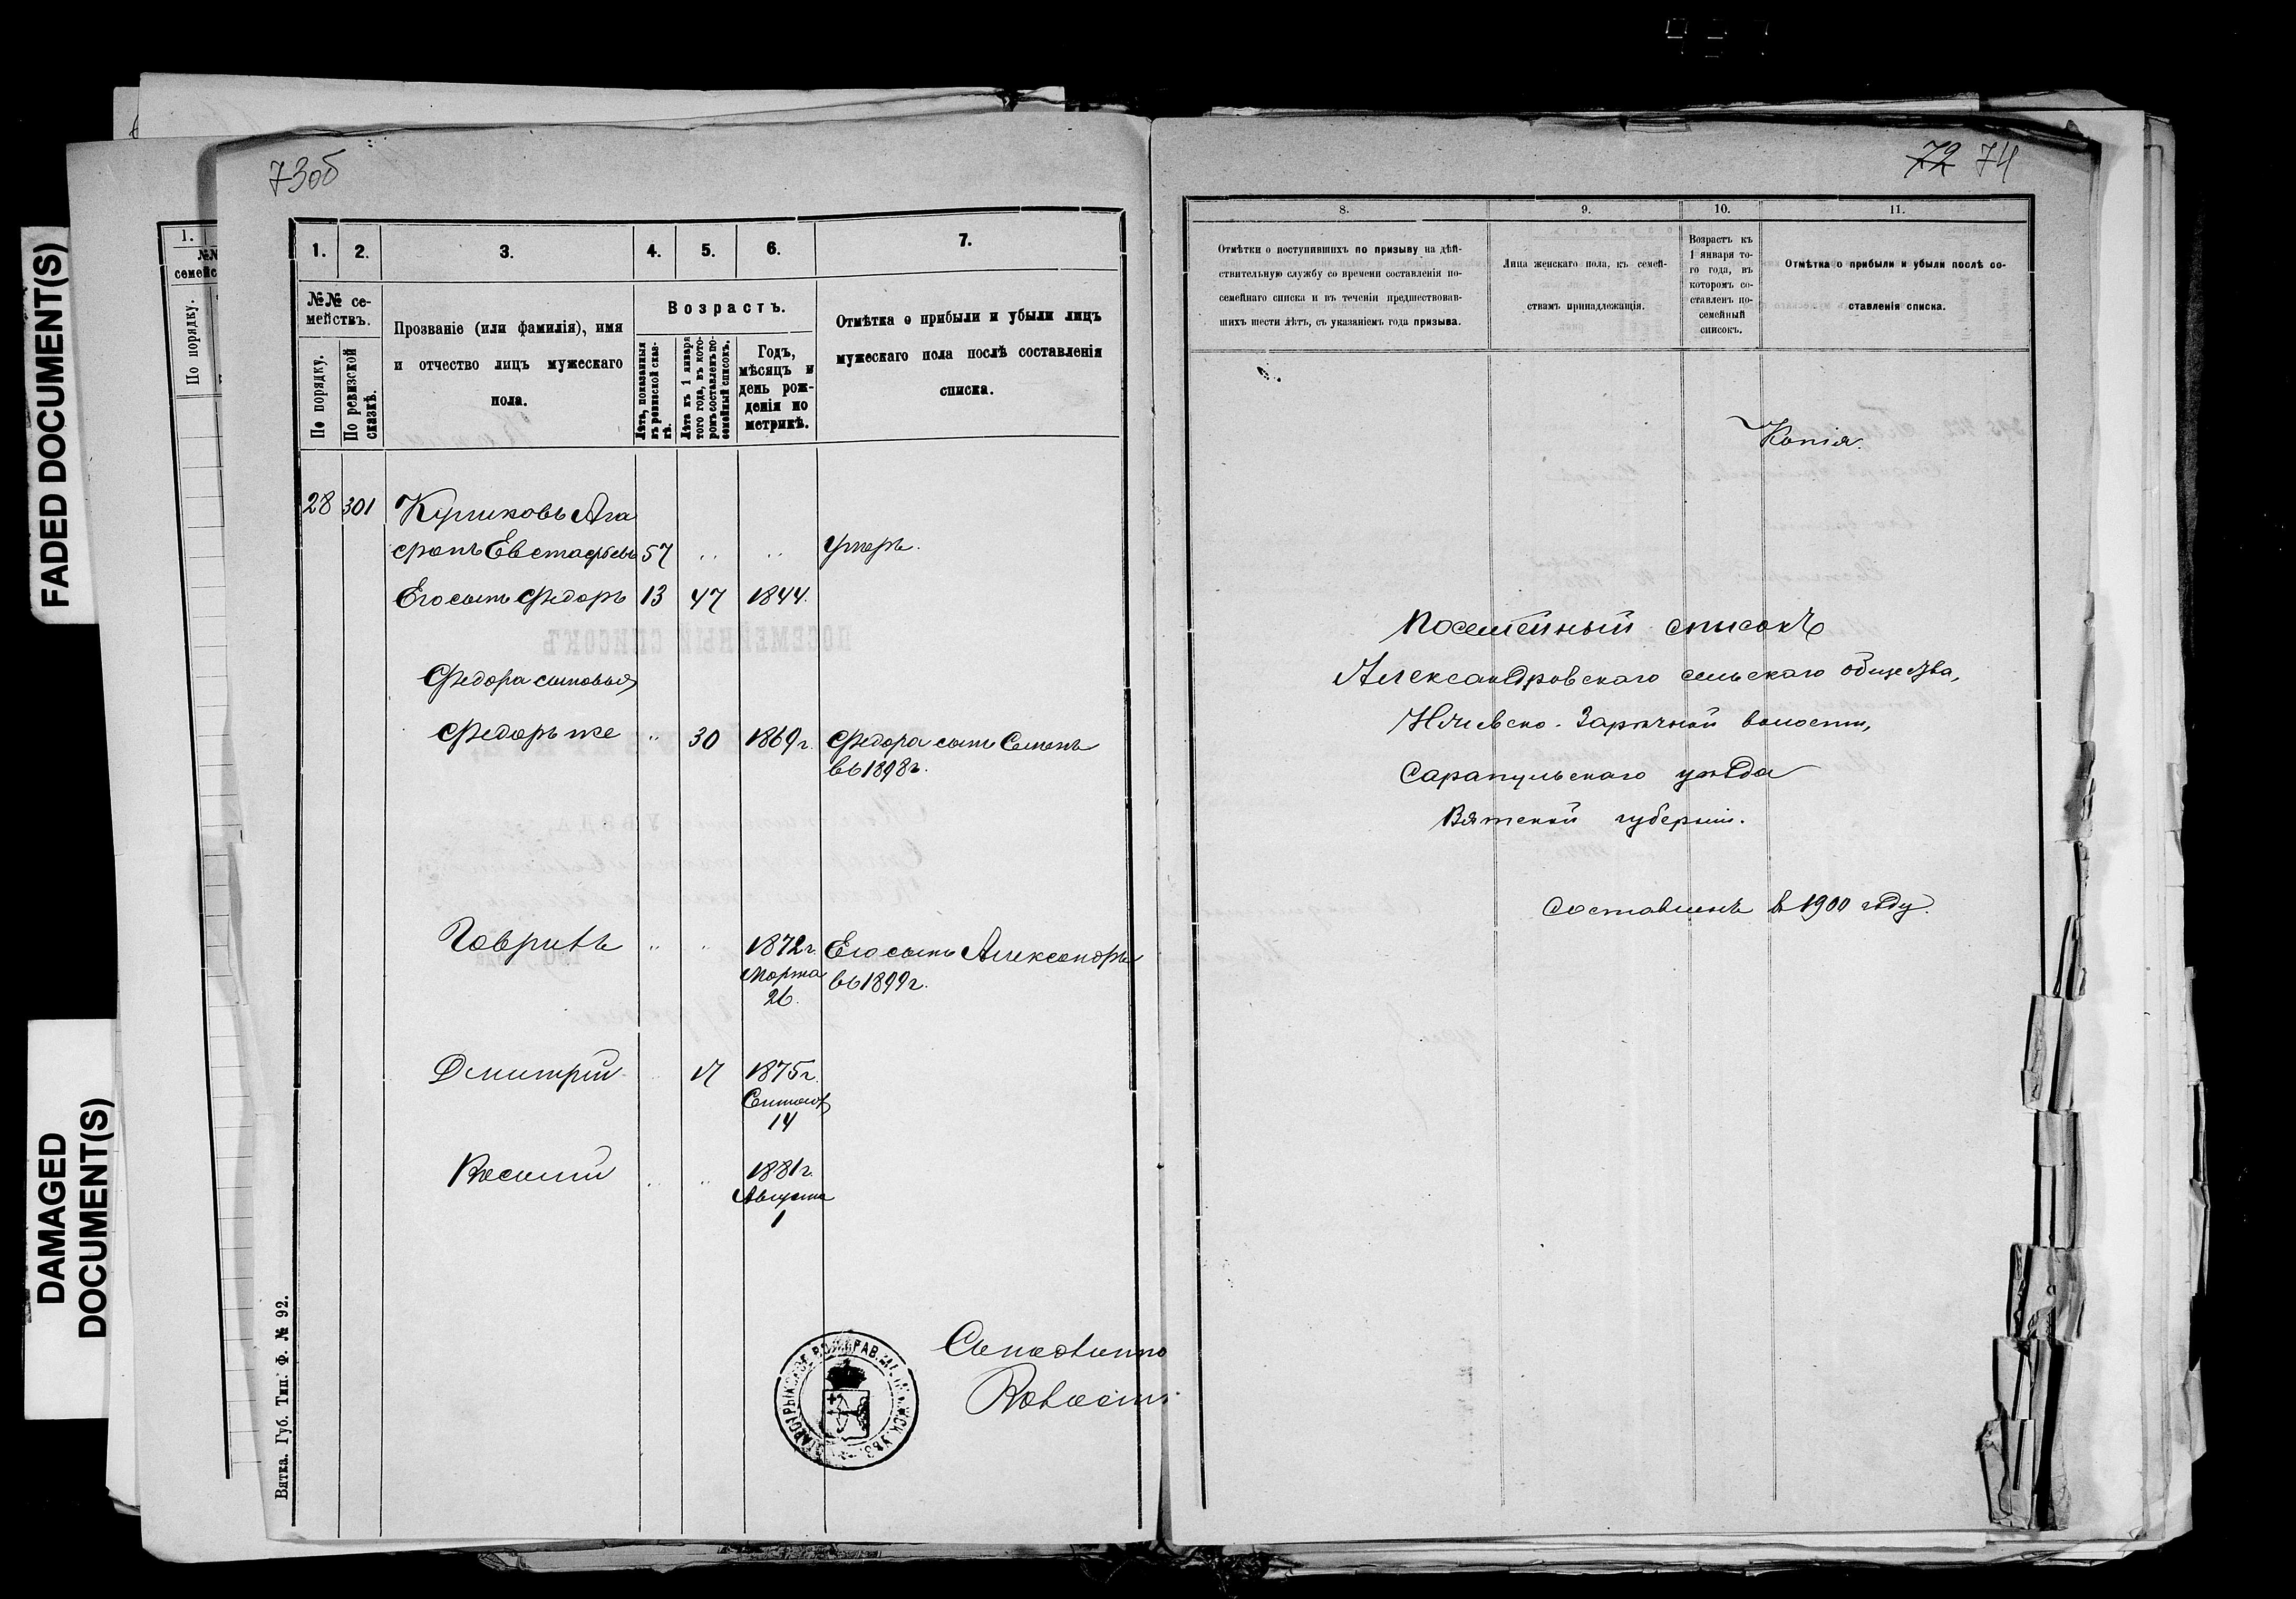 FADED DOCUMENT(S)
DAMAGED
DOCUMENT(S)
1.
№№
семейс
По порядку.
73об
1. 2. 3. 4. 5. 6. 7.
№№ се-
мействъ.
По порядку.
По ревизской
сказкѣ.
Прозваніе (или фамилія), имя
и отчество лицъ мужескаго
пола.
Возрастъ.
Лѣта, показанныя
въ ревизской сказ-
кѣ.
Лѣта къ 1 января
того года, въ кото-
ромъ составленъ по-
семейный списокъ.
Годъ,
мѣсяцъ и
день рож-
денія по
метрикѣ.
Отмѣтка о прибыли и убыли лицъ
мужескаго пола послѣ составленія
списка.
28 301 Куликовъ Ага
фонъ Евстафьевъ 57 " " Умеръ.
Его сынъ Федоръ 13 47 1844.
Федора сыновья
Федоръ же " 30 1869г. Федора сынъ Семенъ
въ 1898г.
Гаврилъ " " 1872г. Его сынъ Александръ
Марта въ 1899г.
26.
Дмитрій " 17 1875г.
14
Василій " " 1881г.
Августа
1
Вятка. Губ. Тип. Ф. № 92.
72 74
8. 9. 10. 11.
Отмѣтки о поступившихъ по призыву на дѣй-
ствительную службу со времени составленія по-
семейнаго списка и въ теченіи предшествовав-
шихъ шести лѣтъ, съ указаніемъ года призыва.
Лица женскаго пола, къ семей-
ствамъ принадлежащія.
Возрастъ къ
1 января то-
го года, въ
которомъ со-
ставленъ по-
семейный
списокъ.
Отмѣтка о прибыли и убыли послѣ со-
ставленія списка.
Копія.
Посемейный списокъ
Александровскаго сельскаго общества,
Нылгинско-Зарѣчной волости,
Сарапульскаго уѣзда
Вятской губерніи.
Составленъ въ 1900 году.